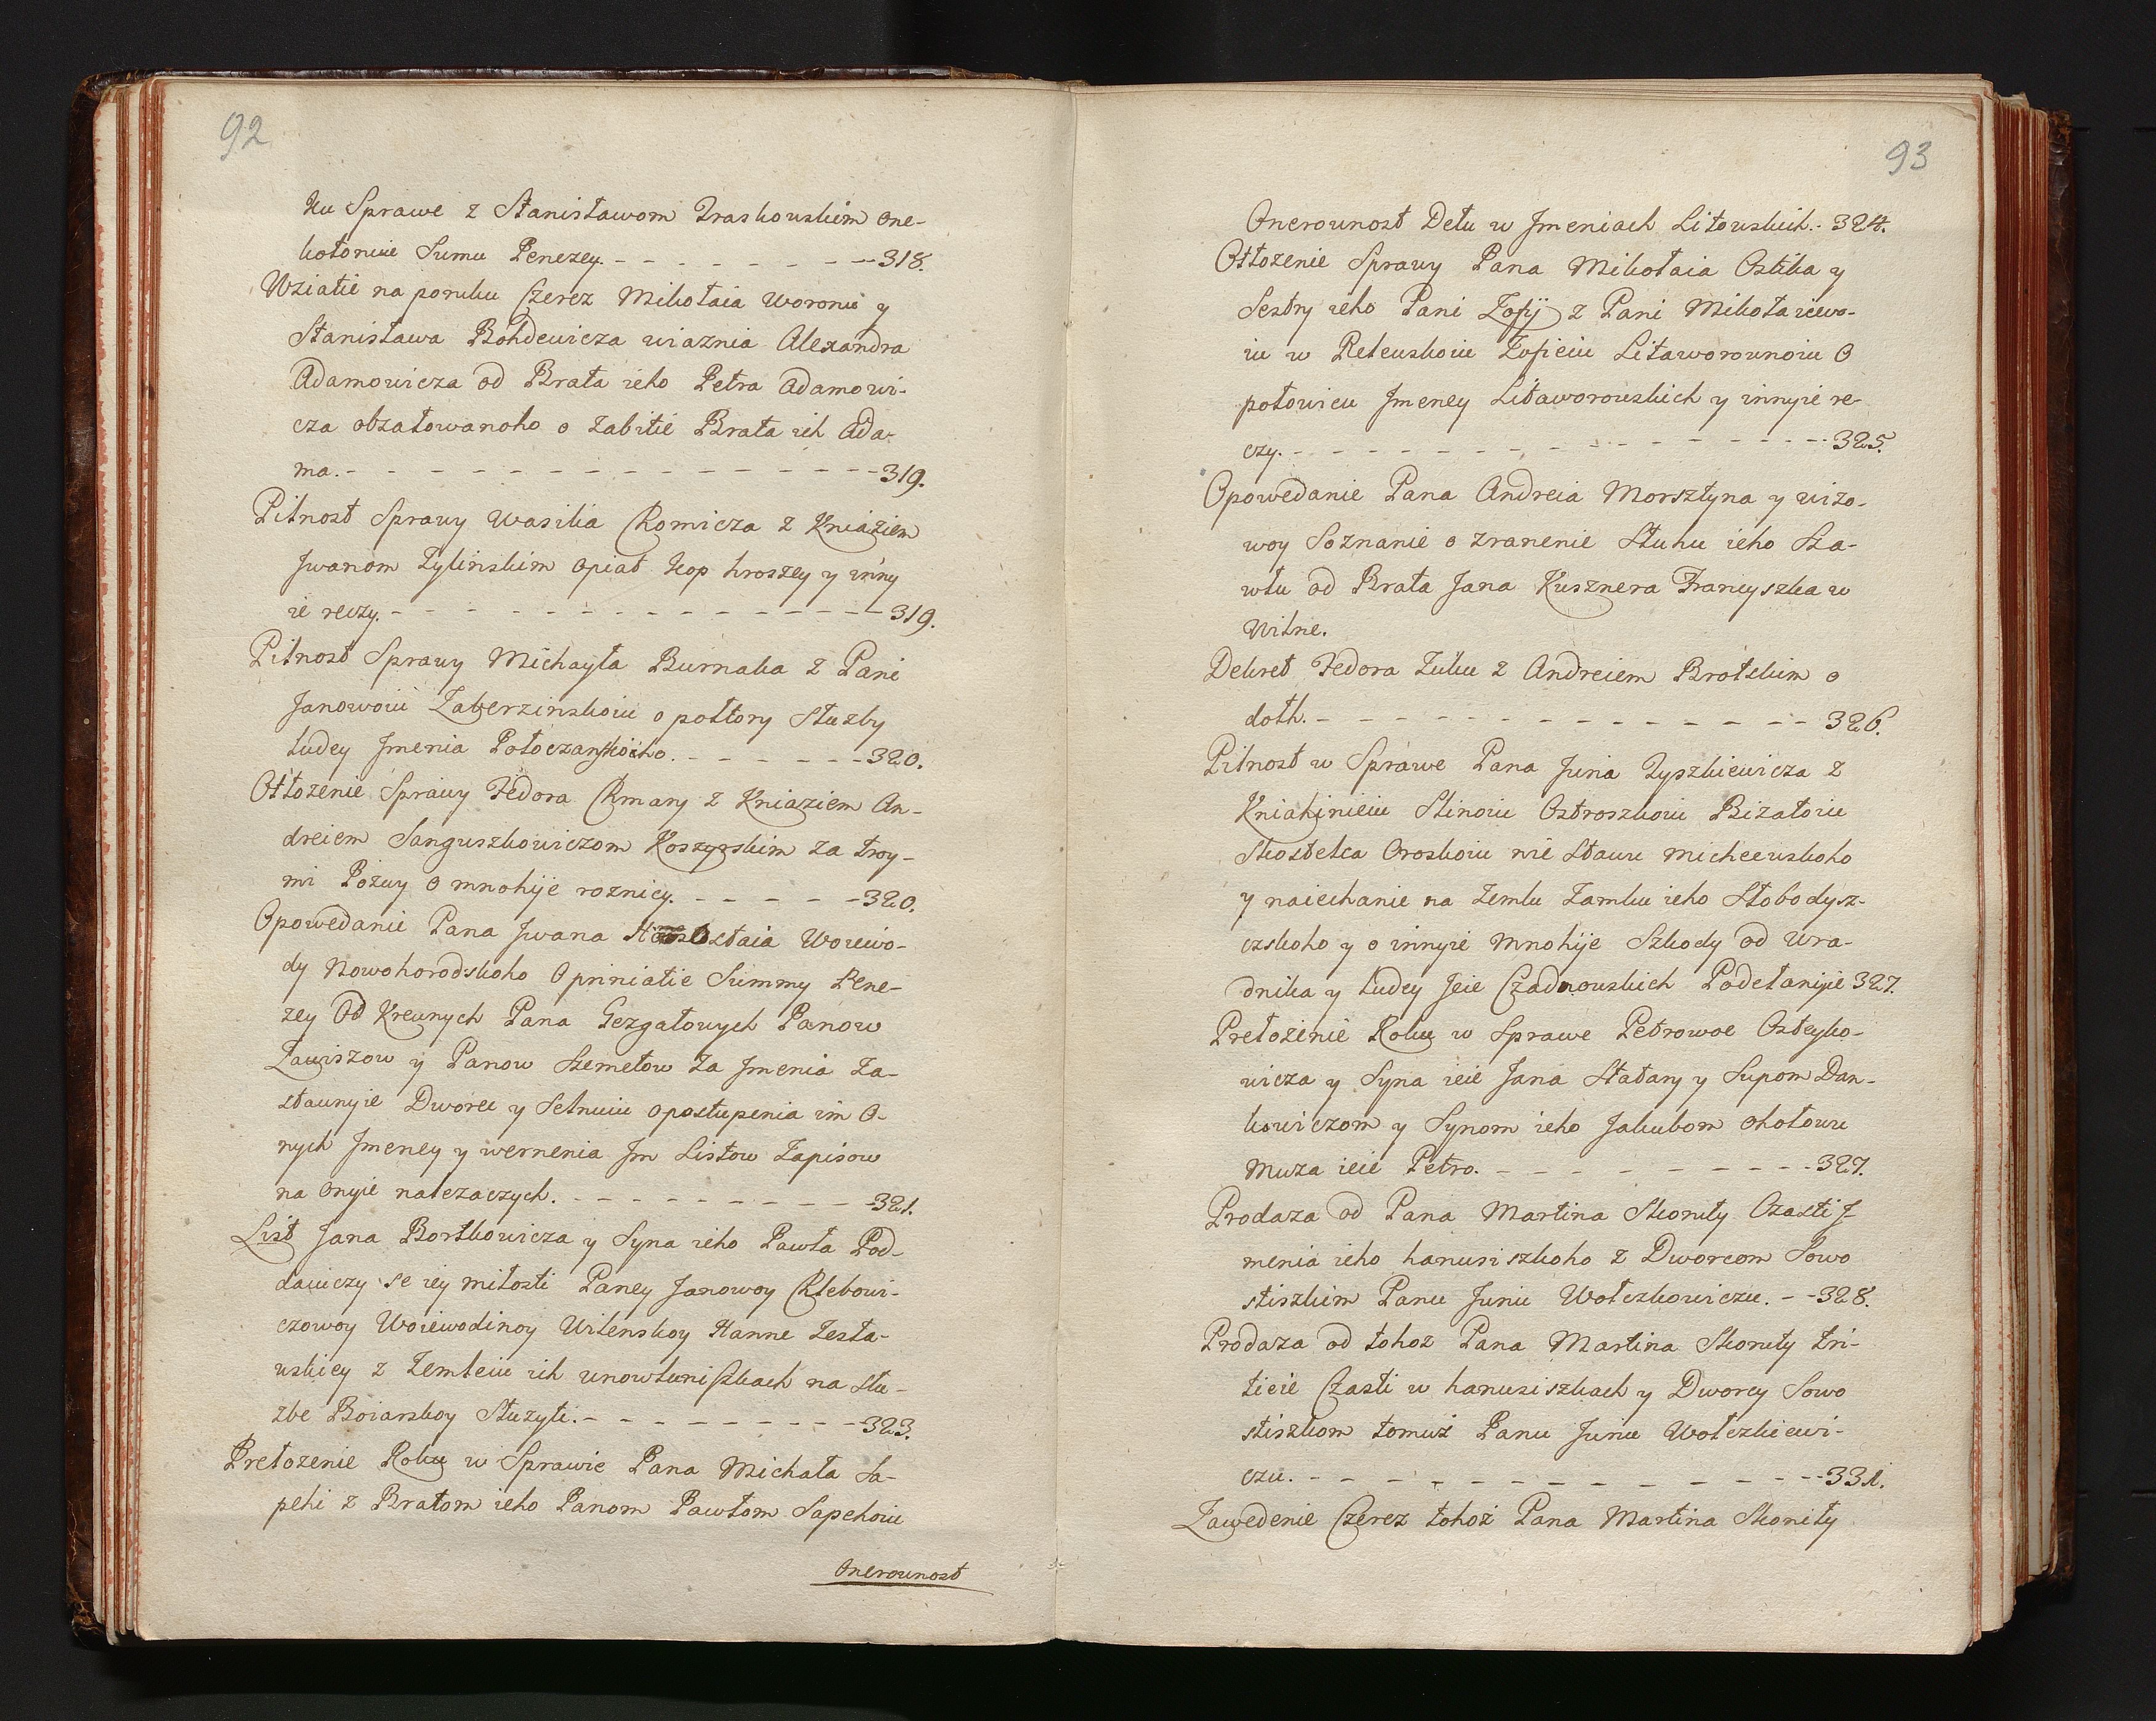 92
ku Sprawe z Stanisławom Traskouskim one-
kotoruie Sumu Penezey. - - - - - - - - 318.
Wziatie na poruku Czerez Mikołaia Woronu y
Stanisława Bohdewicza wiaznia Alexandra
Adamowicza od Brata ieho Petra Adamowi-
cza obżałowanoho o Zabitie Brata ich Ada-
ma. - - - - - - - - - - - - - - - - 319.
Pilnost Sprawy Wasilia Chomicza z Kniaziem
Jwanom Zylinskim opiat kop hroszey y inny
ie reczy. - - - - - - - - - - - - - - 319.
Pilnost Sprawy Michayła Burnaka z Pani
Janowoiu Zaberzinskoiu o połtory Służby
ludey Jmenia Połoczanskoho. - - - - - - - 320.
Otłożenie Sprawy Fedora Chmary z Kniaziem An-
dreiem Sanguszkowiczom Koszyrskim za troy-
mi Pozwy o mnohije roznicy. - - - - - - 320.
Opowedanie Pana Jwana Hornostaia Woiewo-
dy Nowohorodskoho O priniatie Summy Pene-
zey Od Krewnych Pana Gezgałowych Panow
Zawiszow y Panow Szemetow Za Jmenia Za-
stawnyie Dworec y Selnuiu o postupenia im O-
nych Jmeney y wernenia Jm Listow Zapisow
na Onyie nalezaczych. - - - - - - - - - 321.
List Jana Bortkowicza y Syna ieho Pawła Pod-
dauiczy se iey miłosti Paney Janowoy Chlebowi-
czowoy Woiewodinoy Wilenskoy Hanne Zesła-
wskiey z Zemleiu ich unowluniszkach na słu-
zbe Boiarskoy Służyti. - - - - - - - - - 323.
Prełożenie Roku w Sprawie Pana Michała Sa-
pehi z Bratom ieho Panom Pawłom Sapehoiu
Onerownost
93
Onerownost Dełu w Jmeniach Litowskich. - 324.
Otłożenie Sprawy Pana Mikołaia Ostika y
Sestry ieho Pani Zofij z Pani Mikołaiewo-
iu w Releuskoiu Zofieiu Litaworownoiu O
połowicu Jmeney Litaworowskich y innyie re-
czy. - - - - - - - - - - - - - - - - - 325.
Opowedanie Pana Andreia Morsztyna y wizo-
woy Soznanie o zranenie Słuhu ieho Sza-
włu od Brata Jana Kusznera Francyszka w
Wilne.
Dekret Fedora Zuku z Andreiem Brołskim o
dołh. - - - - - - - - - - - - - - - 326.
Pilnost w Sprawe Pana Juria Tyszkiewicza z
Kniahinieiu Ilinoiu Ostroszkoiu Biżatoiu
Skosteleca Oroskoiu nie Stawu micheewskoho
y naiechanie na Zemlu Zamku ieho Słobodysz-
czskoho y o innyie mnohije Szkody od Wra-
dnika y ludey Jeie Czadnowskich Podełanyie 327.
Prełożenie Roku w Sprawe Petrowoe Osteyko-
wicza y Syna ieie Jana Sładary y Supom Dan-
kowiczom y Synom ieho Jakubom ohołowu
Muża ieie Petro. - - - - - - - - - - 327.
Prodaża od Pana Martina Skoruty Czasti J-
menia ieho hanusiszkoho z Dworcom Sowo
stiszkim Panu Juriu Wołczkowiczu. - - 328.
Prodaża od tohoż Pana Martina Skoruty tri-
tieie Czasti w hanusiszkach y Dworcy Sowo
stiszkom tomuż Panu Juriu Wołczkiewi-
czu. - - - - - - - - - - - - - - - - 331.
Zawedenie Czerez tohoż Pana Martina Skoruty